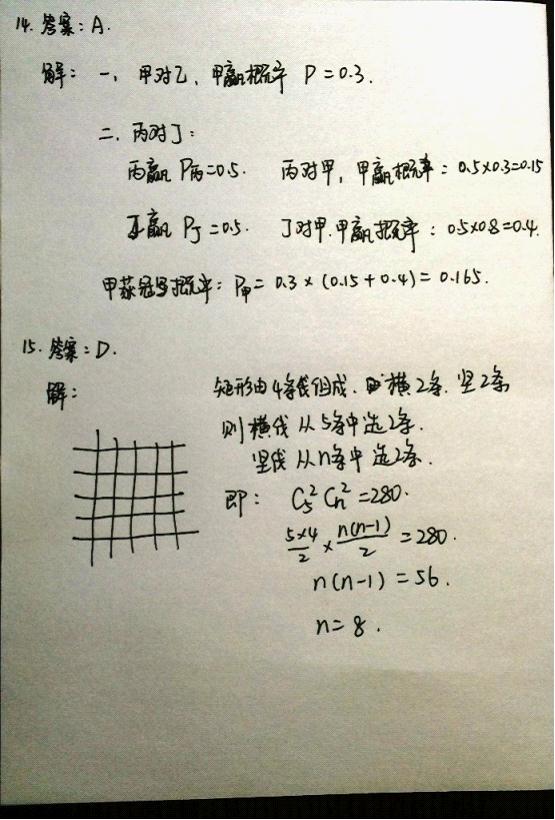 14. 答案：A.
解：一、甲对乙，甲赢概率 P=0.3.
二、丙对丁：
丙赢 P丙=0.5. 丙对甲，甲赢概率：0.5×0.3=0.15
丁赢 P丁=0.5. 丁对甲，甲赢概率：0.5×0.8=0.4.
甲获冠军概率：P甲=0.3×(0.15+0.4)=0.165.
15. 答案：D.
解：矩形由4条线组成，横2条，竖2条
则横线从5条中选2条.
竖线从n条中选2条.
即：C₅² Cₙ²=280.
5×4/2 × n(n-1)/2 =280.
n(n-1)=56.
n=8.